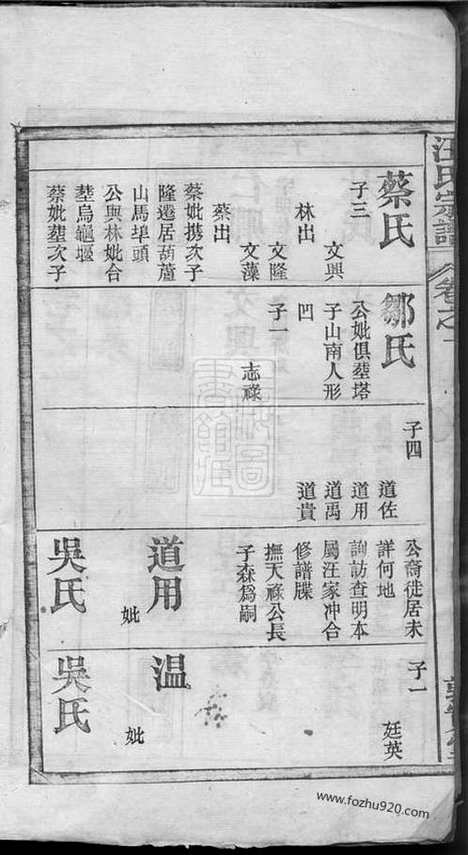 汪氏宗譜
卷之一
蔡氏
子三
文興
林出
文隆
文藻
蔡出
蔡妣携次子
隆遷居葫蘆
山馬埠頭
公與林妣合
塟烏龜堰
蔡妣塟次子
鄒氏
公妣俱塟塔
子山南人形
凹
子一
志祿
子四
道佐
道用
道禹
道貴
公裔徙居未
詳何地
詢訪查明本
屬汪家冲合
修譜牒
撫天祿公長
子森爲嗣
道用
妣
吳氏
子一
廷英
温
妣
吳氏
www.fozhu920.com